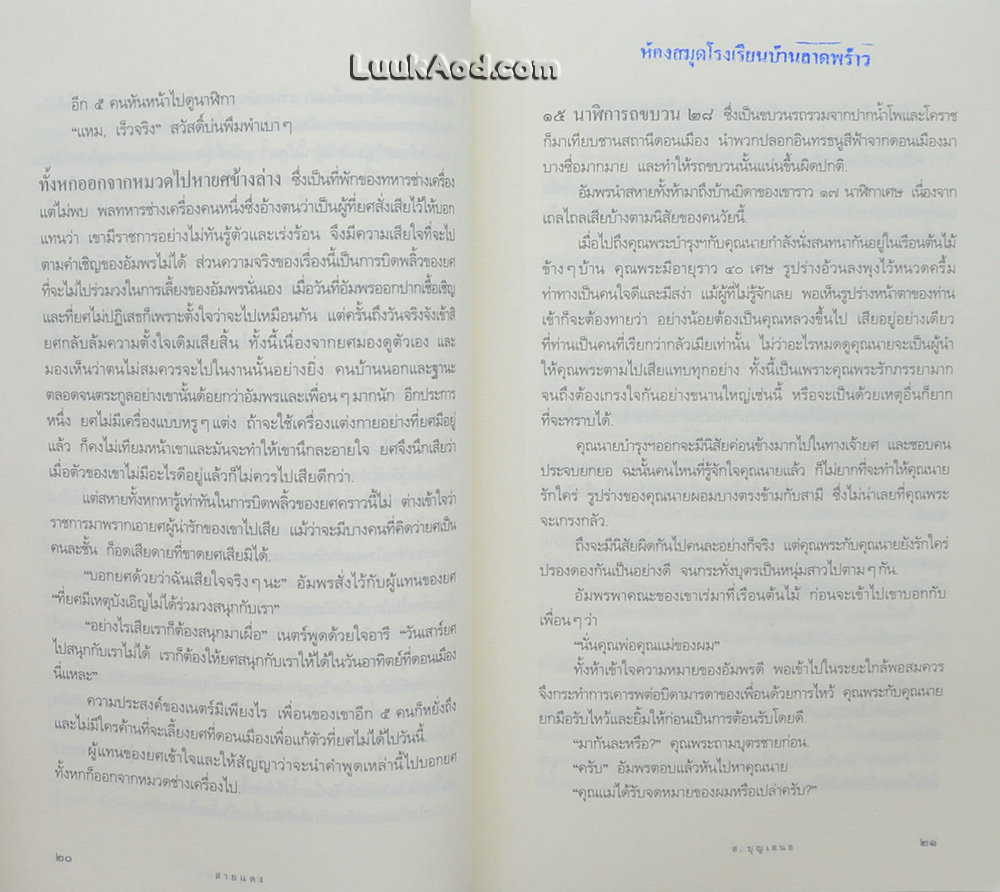 LuukAod.com
อีก ๕ คนหันหน้าไปดูนาฬิกา
“แหม, เร็วจริง” สวัสดิ์บ่นพึมพำเบาๆ
ทั้งหกออกจากหมวดไปหายศข้างล่าง ซึ่งเป็นที่พักของทหารช่างเครื่อง
แต่ไม่พบ พลทหารช่างเครื่องคนหนึ่งซึ่งอ้างตนว่าเป็นผู้ที่ยศสั่งเสียไว้ให้บอก
แทนว่า เขามีราชการอย่างไม่ทันรู้ตัวและเร่งร้อน จึงมีความเสียใจที่จะไป
ตามคำเชิญของอัมพรไม่ได้ ส่วนความจริงของเรื่องนี้เป็นการบิดพลิ้วของยศ
ที่จะไม่ไปร่วมวงในการเลี้ยงของอัมพรนั่นเอง เมื่อวันที่อัมพรออกปากเชื้อเชิญ
และที่ยศไม่ปฏิเสธก็เพราะตั้งใจว่าจะไปเหมือนกัน แต่ครั้นถึงวันจริงจังเข้าสิ
ยศกลับล้มความตั้งใจเดิมเสียสิ้น ทั้งนี้เนื่องจากยศมองดูตัวเอง และ
มองเห็นว่าตนไม่สมควรจะไปในงานนั้นอย่างยิ่ง คนบ้านนอกและฐานะ
ตลอดจนตระกูลอย่างเขานั้นด้อยกว่าอัมพรและเพื่อนๆ มากนัก อีกประการ
หนึ่ง ยศไม่มีเครื่องแบบหรูๆ แต่ง ถ้าจะใช้เครื่องแต่งกายอย่างที่ยศมีอยู่
แล้ว ก็คงไม่เทียมหน้าเขาและมันจะทำให้เขานึกละอายใจ ยศจึงนึกเสียว่า
เมื่อตัวของเขาไม่มีอะไรดีอยู่แล้วก็ไม่ควรไปเสียดีกว่า.
แต่สหายทั้งหกหารู้เท่าทันในการบิดพลิ้วของยศคราวนี้ไม่ ต่างเข้าใจว่า
ราชการมาพรากเอายศผู้น่ารักของเขาไปเสีย แม้ว่าจะมีบางคนที่คิดว่ายศเป็น
คนละชั้น ก็อดเสียดายที่ขาดยศเสียมิได้.
“บอกยศด้วยว่าฉันเสียใจจริงๆ นะ” อัมพรสั่งไว้กับผู้แทนของยศ
“ที่ยศมีเหตุบังเอิญไม่ได้ร่วมวงสนุกกับเรา”
“อย่างไรเสียเราก็ต้องสนุกมาเผื่อ” เนตร์พูดด้วยใจอารี “วันเสาร์ยศ
ไปสนุกกับเราไม่ได้ เราก็ต้องให้ยศสนุกกับเราให้ได้ในวันอาทิตย์ที่ดอนเมือง
นี่แหละ”
ความประสงค์ของเนตร์มีเพียงไร เพื่อนของเขาอีก ๕ คนก็หยั่งถึง
และไม่มีใครค้านที่จะเลี้ยงยศที่ดอนเมืองเพื่อแก้ตัวที่ยศไม่ได้ไปวันนี้.
ผู้แทนของยศเข้าใจและให้สัญญาว่าจะนำคำพูดเหล่านี้ไปบอกยศ
ทั้งหกก็ออกจากหมวดช่างเครื่องไป.
๒๐
สายแดง
ห้องสมุดโรงเรียนบ้านลาดพร้าว
๑๕ นาฬิการถขบวน ๒๘ ซึ่งเป็นขบวนรถรวมจากปากน้ำโพและโคราช
ก็มาเทียบชานสถานีดอนเมือง นำพวกปลอกอินทรธนูสีฟ้าจากดอนเมืองมา
บางซื่อมากมาย และทำให้รถขบวนนั้นแน่นขึ้นผิดปกติ.
อัมพรนำสหายทั้งห้ามาถึงบ้านบิดาของเขาราว ๑๗ นาฬิกาเศษ เนื่องจาก
เถลไถลเสียบ้างตามนิสัยของคนวัยนี้.
เมื่อไปถึงคุณพระบำรุงฯกับคุณนายกำลังนั่งสนทนากันอยู่ในเรือนต้นไม้
ข้างๆ บ้าน คุณพระมีอายุราว ๔๐ เศษ รูปร่างอ้วนลงพุงไว้หนวดครึ้ม
ท่าทางเป็นคนใจดีและมีสง่า แม้ผู้ที่ไม่รู้จักเลย พอเห็นรูปร่างหน้าตาของท่าน
เข้าก็จะต้องทายว่า อย่างน้อยต้องเป็นคุณหลวงขึ้นไป เสียอยู่อย่างเดียว
ที่ท่านเป็นคนที่เรียกว่ากลัวเมียเท่านั้น ไม่ว่าอะไรหมดดูคุณนายจะเป็นผู้นำ
ให้คุณพระตามไปเสียแทบทุกอย่าง ทั้งนี้เป็นเพราะคุณพระรักภรรยามาก
จนถึงต้องเกรงใจกันอย่างขนานใหญ่เช่นนี้ หรือจะเป็นด้วยเหตุอื่นก็ยาก
ที่จะทราบได้.
คุณนายบำรุงฯออกจะมีนิสัยค่อนข้างมากไปในทางเจ้ายศ และชอบคน
ประจบยกยอ ฉะนั้นคนไหนที่รู้จักใจคุณนายแล้ว ก็ไม่ยากที่จะทำให้คุณนาย
รักใคร่ รูปร่างของคุณนายผอมบางตรงข้ามกับสามี ซึ่งไม่น่าเลยที่คุณพระ
จะเกรงกลัว.
ถึงจะมีนิสัยผิดกันไปคนละอย่างก็จริง แต่คุณพระกับคุณนายยังรักใคร่
ปรองดองกันเป็นอย่างดี จนกระทั่งบุตรเป็นหนุ่มสาวไปตามๆ กัน.
อัมพรพาคณะของเขาเร่มาที่เรือนต้นไม้ ก่อนจะเข้าไปเขาบอกกับ
เพื่อนๆ ว่า
“นั่นคุณพ่อคุณแม่ของผม”
ทั้งห้าเข้าใจความหมายของอัมพรดี พอเข้าไปในระยะใกล้พอสมควร
จึงกระทำการเคารพต่อบิดามารดาของเพื่อนด้วยการไหว้ คุณพระกับคุณนาย
ยกมือรับไหว้และยิ้มให้ก่อนเป็นการต้อนรับโดยดี.
“มากันละหรือ?” คุณพระถามบุตรชายก่อน.
“ครับ” อัมพรตอบแล้วหันไปหาคุณนาย
“คุณแม่ได้รับจดหมายของผมหรือเปล่าครับ?”
ส. บุญเสนอ
๒๑